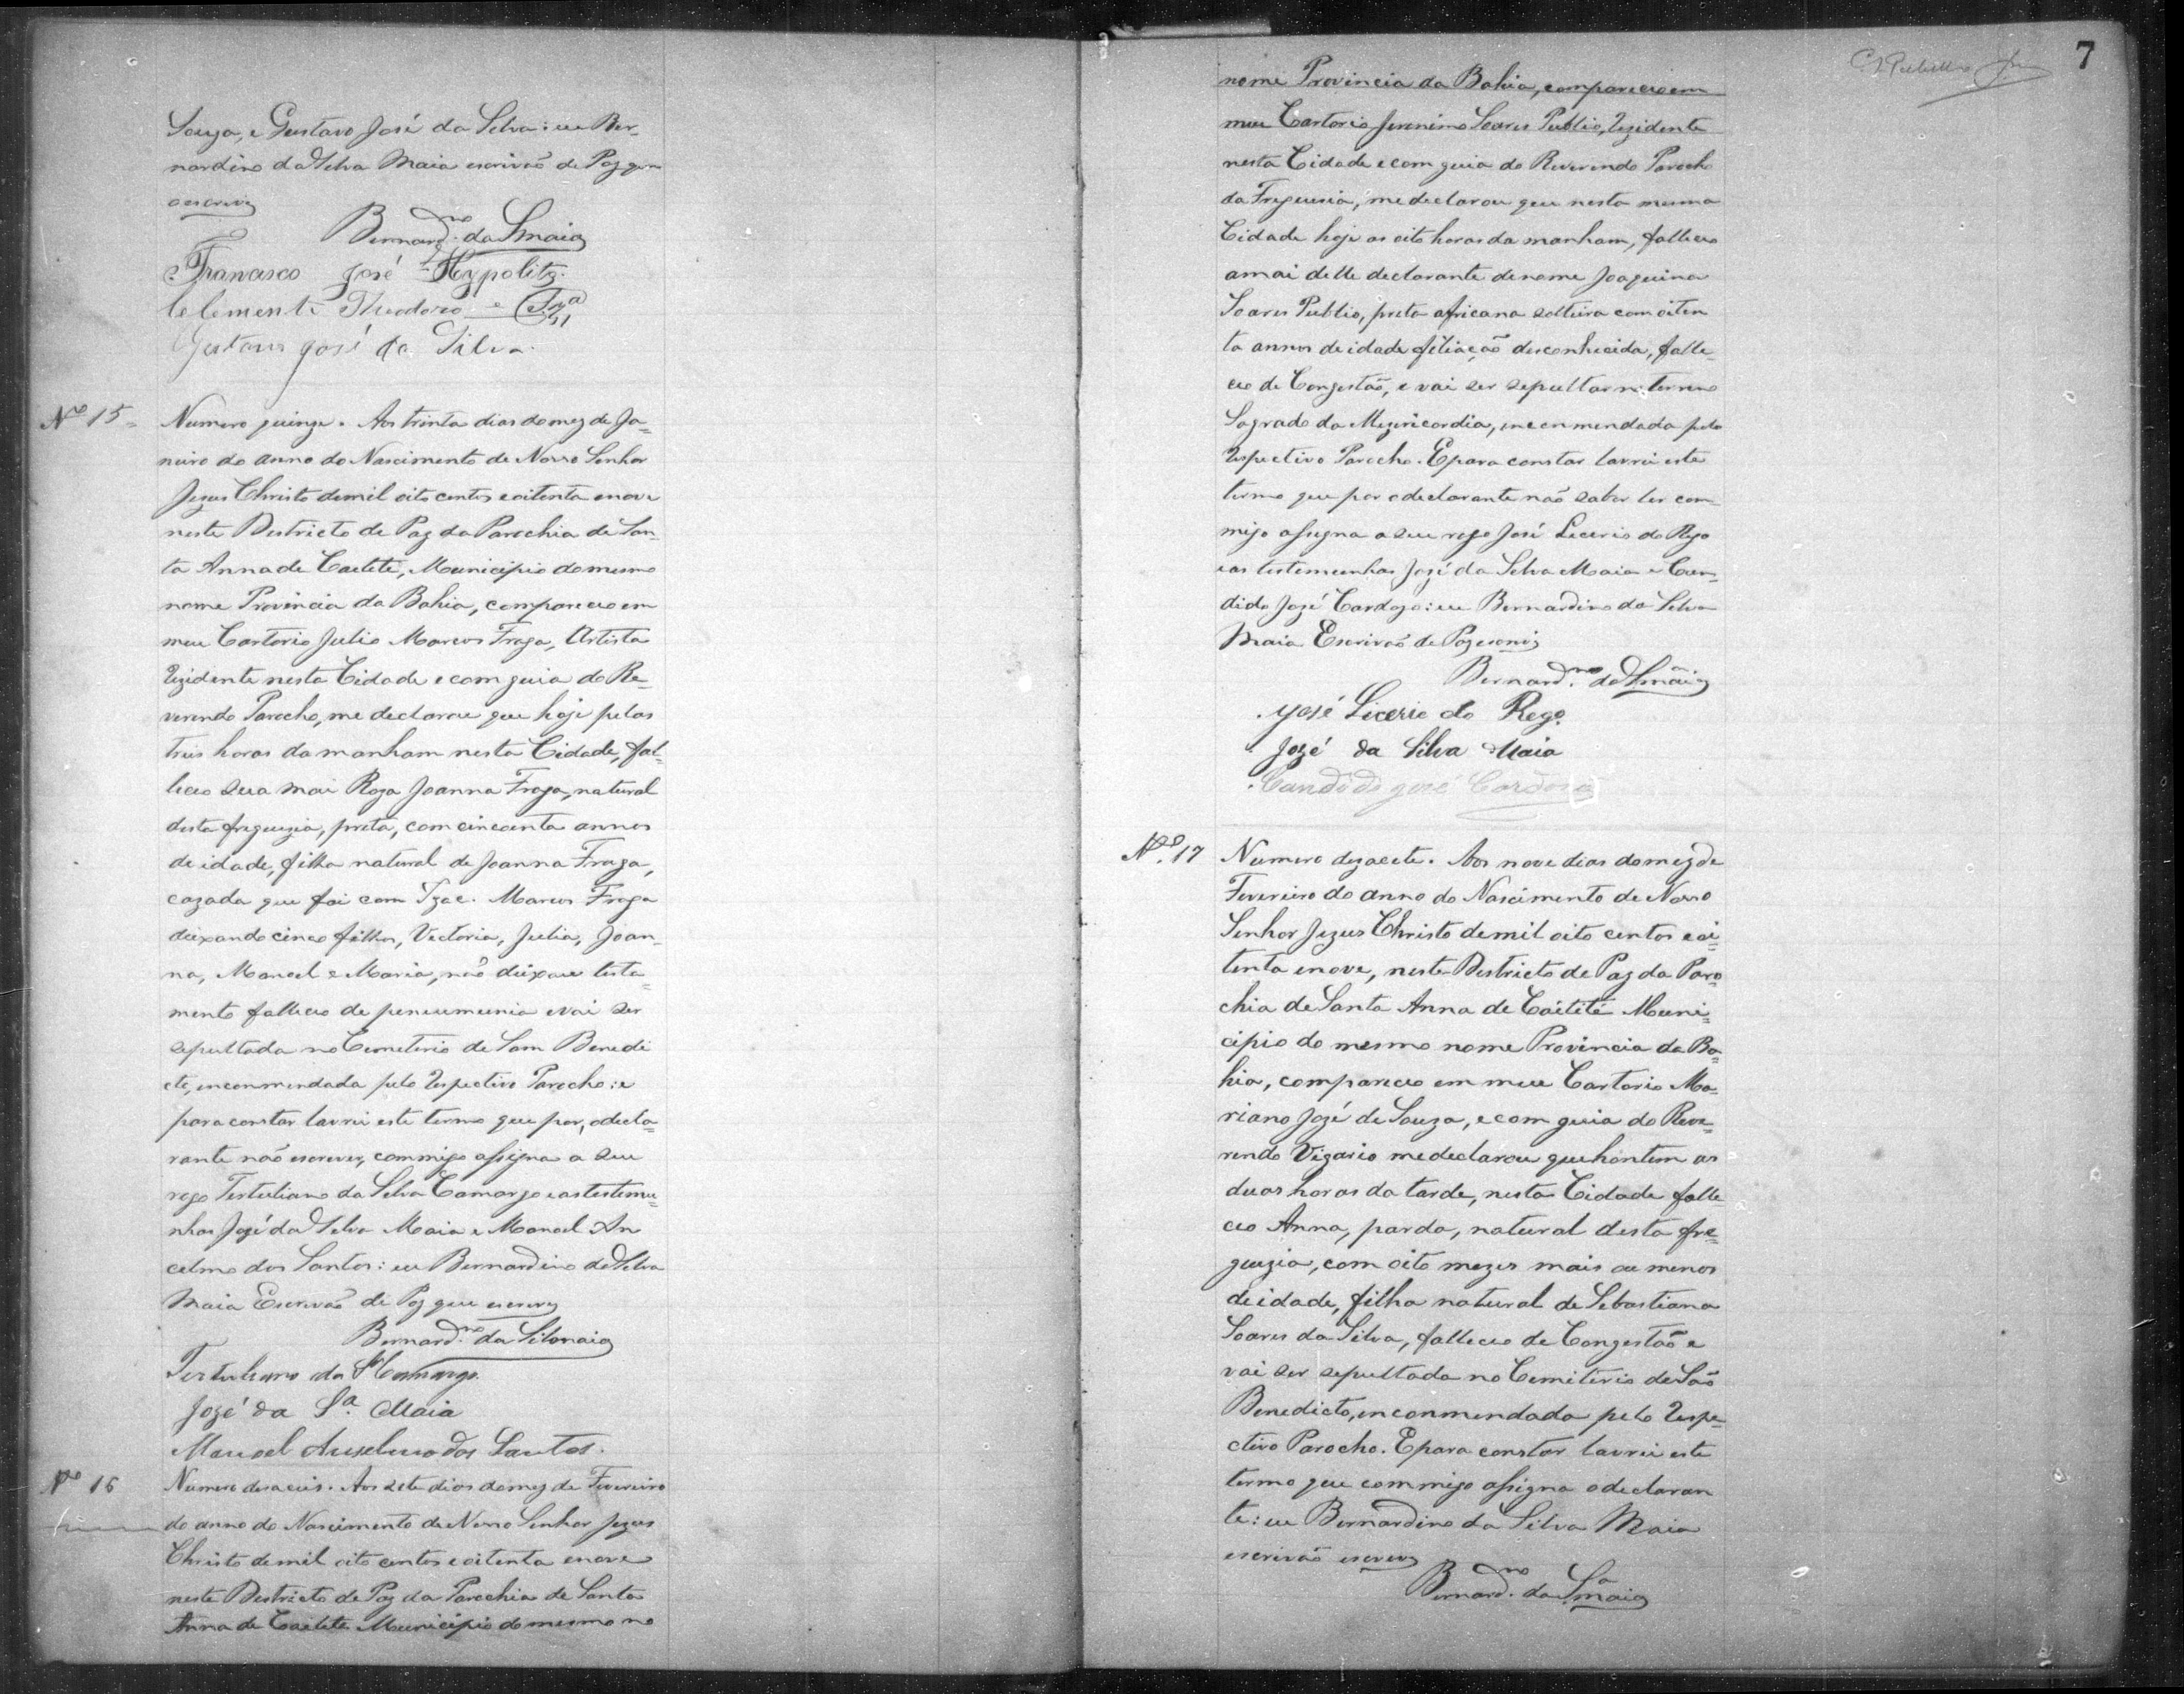 Souza, e Gustavo José da Silva: eu Ber-
nardino da Silva Maia escrivão de Paz que
o escrevy
Bernard.no da S.Maia
Francisco José Hypolito
Clemente Theodoro e
Gustavo José da Silva.
Nº 15
Numero quinze. Aos trinta dias do mez de Ja=
neiro do anno do Nascimento de Nosso Senhor
Jezus Christo de mil oito centos e oitenta e nove
neste Destricto de Paz da Parochia de San-
ta Anna de Caetité, Municipio do mesmo
nome Provincia da Bahia, compareceo em
meu Cartorio Julio Marcos Fraga, Artista
Rezidente nesta Cidade e com guia do Re-
verendo Parocho, me declarou que hoje pelas
tres horas da manham nesta Cidade, fal-
leceo sua mai Roza Joanna Fraga, natural
desta freguezia, preta, com cincoenta annos
de idade, filha natural de Joanna Fraga,
cazada que foi com Izac. Marcos Fraga
deixando cinco filhos, Victoria, Julia, Joan-
na, Manoel e Maria, não deixou testa=
mento falleceo de peneumunia e vai ser
sepultada no Cemeterio de Sam Benedi
cto, enconmendada pelo Respectivo Parocho: e
para constar lavrei este termo que por, o decla=
rante não escrever, commigo assigna a seu
rogo Tertuliano da Silva Camargo e as testemu=
nhas Jozé da Silva Maia e Manoel An
celmo dos Santos: eu Bernardino da Silva
Maia Escrivão de Paz que escrevy
Bernard.no da Silv.maia
Tertuliano da S.Camargo.
Jozé da S.a Maia
Manoel Anselmo dos Santos.
Nº 16
Numero desaceis. Aos sete dias do mez de Fevereiro
do anno do Nascimento de Nosso Senhor Jezus
Christo de mil oito centos e oitenta e nove
neste Destricto de Paz da Parochia de Santa
Anna de Caetité Municipio do mesmo no
7
nome Provincia da Bahia, compareceo em
meu Cartorio Jeronimo Soares Publio, Rezidente
nesta Cidade e com guia do Reverendo Parocho
da Freguezia, me declarou que nesta mesma
Cidade hoje as oito horas da manham, falleceo
a mai delle declarante de nome Joaquina
Soares Publio, preta africana solteira com oiten
ta annos de idade filiação desconhecida, falle-
ceo de Congestão, e vai ser sepultar no terreno
Sagrado da Mizericordia, enconmendada pelo
Respectivo Parocho. E para constar lavrei este
termo que por o declarante não saber ler com
migo assigna a seu rogo José Licerio do Rego
e as testemunhas Jozé da Silva Maia e Can-
dido Jozé Cardozo: eu Bernardino da Silva
Maia Escrivão de Paz escrevi
Bernard.no da S.maia
José Licerio do Rego.
Jozé da Silva Maia
Candido José Cardoso
Nº 17
Numero dezacete. Aos nove dias do mez de
Fevereiro do anno do Nascimento de Nosso
Senhor Jezus Christo de mil oito centos e oi=
tenta e nove, neste Destricto de Paz da Paro=
chia de Santa Anna de Caétité Muni=
cipio do mesmo nome Provincia da Ba=
hia, compareceo em meu Cartorio Ma=
riano Jozé de Souza, e com guia do Reve=
rendo Vigario me declarou que hontem as
duas horas da tarde, nesta Cidade falle
ceo Anna, parda, natural desta fre=
guezia, com oito mezes mais ou menos
de idade, filha natural de Sebastiana
Soares da Silva, falleceo de Congestão e
vai ser sepultada no Cemiterio de São
Benedicto, enconmendada pelo Respe=
ctivo Parocho. E para constar lavrei este
termo que commigo assigna o declaran
te: eu Bernardino da Silva Maia
escrivão escrevy
Bernard.no da S.a maia